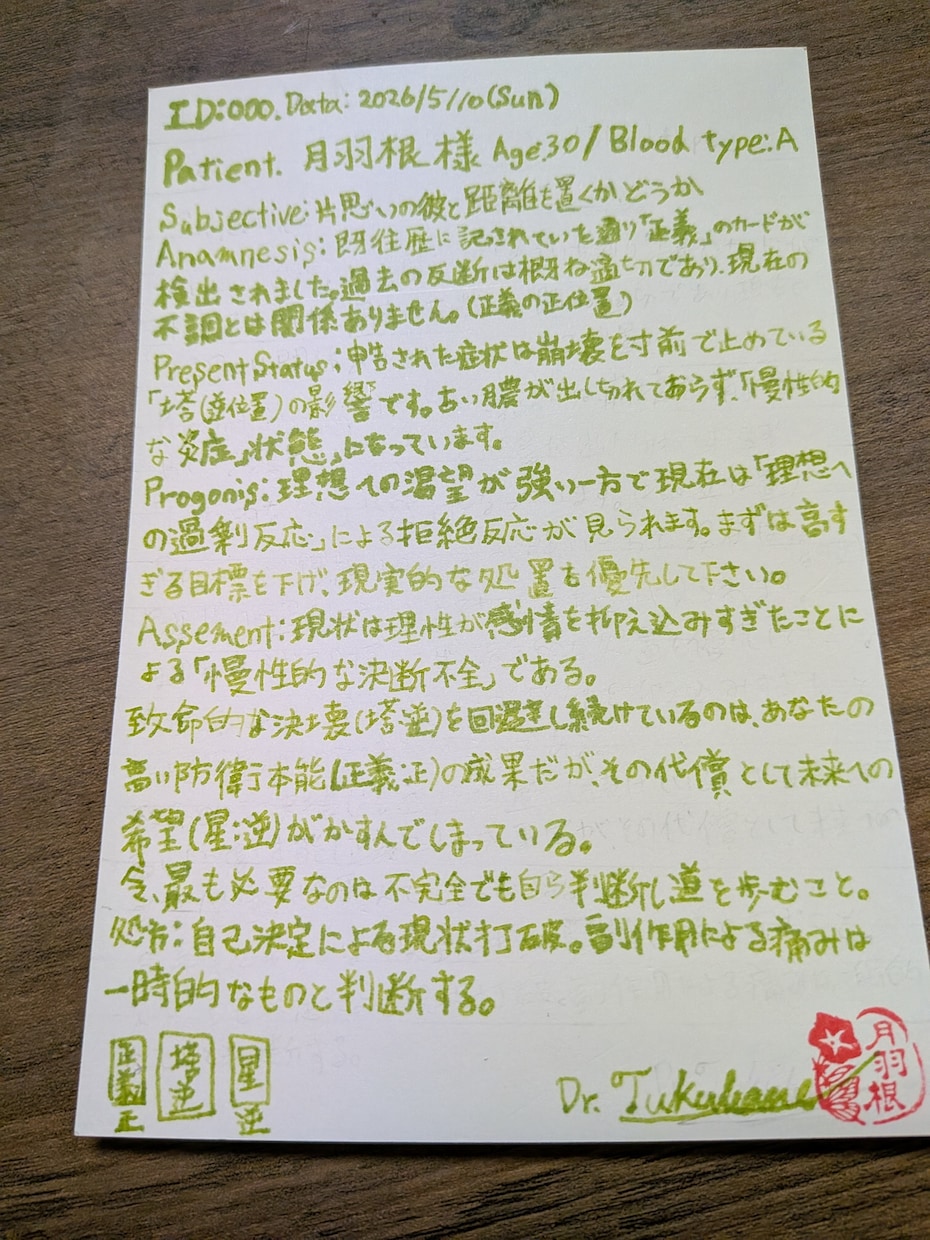 ID:000. Data: 2026/5/10(Sun)
Patient. 月羽根 様 Age:30/Blood type:A
Subjective:片思いの彼と距離を置くかどうか
Anamnesis:既往歴に記されていた通り「正義」のカードが
検出されました。過去の反断は根ね適切であり、現在の
不調とは関係ありません。(正義の正位置)
Present Status:申告された症状は崩壊を寸前で止めている
「塔(逆位置)の影響です。古い膿が出し切れておらず、「慢性的
な炎症」状態」になっています。
Progonis:理想への渇望が強い一方で現在は「理想へ
の過剰反応」による拒絶反応が見られます。まずは高す
ぎる目標を下げ、現実的な処置を優先して下さい。
Assement:現状は理性が感情を抑え込みすぎたことに
よる「慢性的な決断不全」である。
致命的な決壊(塔:逆)を回避し続けているのは、あなたの
高い防衛本能(正義:正)の成果だが、その代償として未来への
希望(星:逆)がかすんでしまっている。
今、最も必要なのは不完全でも自ら判断し道を歩むこと。
処方:自己決定による現状打破。副作用による痛みは
一時的なものと判断する。
正義 正 塔 逆 星 逆
Dr. Tukuhane
月羽根